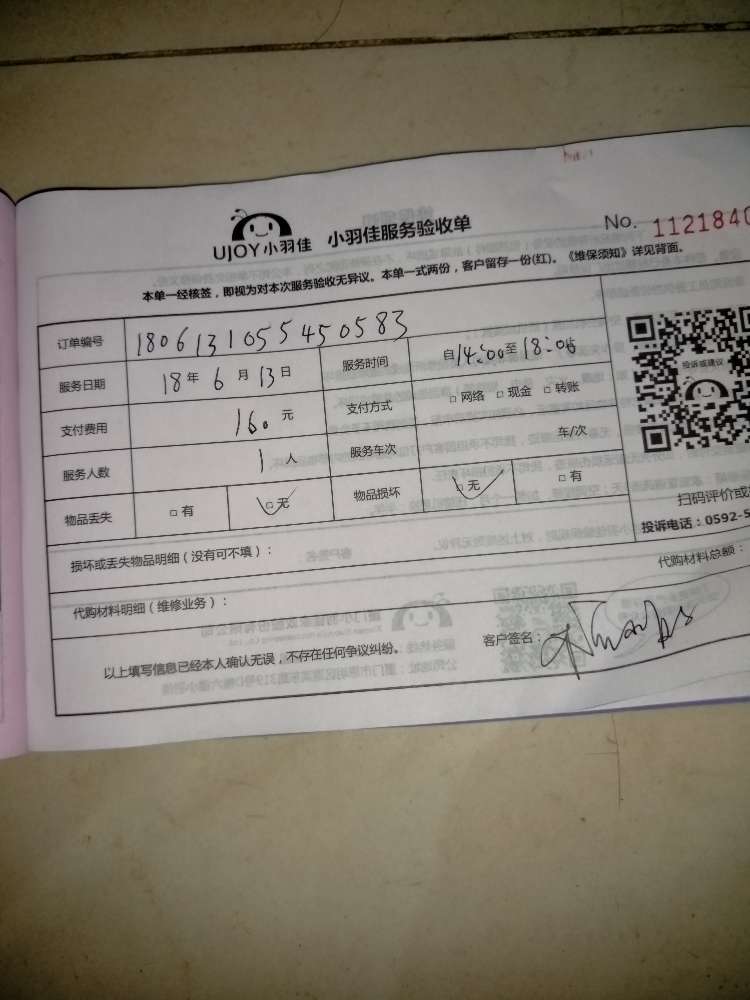 UJOY小羽佳 小羽佳服务验收单 No. 1121840
本单一经核签，即视为对本次服务验收无异议。本单一式两份，客户留存一份(红)。《维保须知》详见背面。
订单编号 1806131055450583 服务时间 自14:00至18:00
服务日期 18年6月13日 支付方式 □网络 □现金 □转账
支付费用 160元 服务车次 车/次
服务人数 1人 物品损坏 □无 □有
物品丢失 □有 □无
投诉或建议
扫码评价或
投诉电话：0592-5
损坏或丢失物品明细（没有可不填）：
代购材料总额：
代购材料明细（维修业务）：
以上填写信息已经本人确认无误，不存在任何争议纠纷。 客户签名：